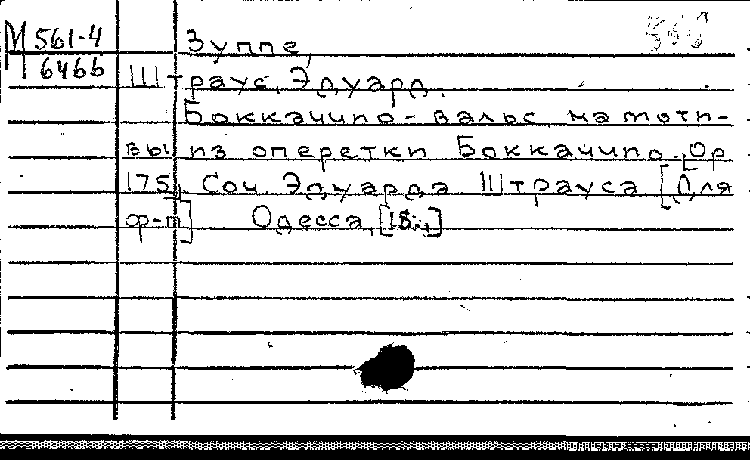 М 561-4
6466
Зуппе,
Штраус, Эдуард.
Боккаччио-вальс на моти-
вы из оперетки Боккаччио. Op
175. Соч. Эдуарда Штрауса [Для
ф-п] Одесса,